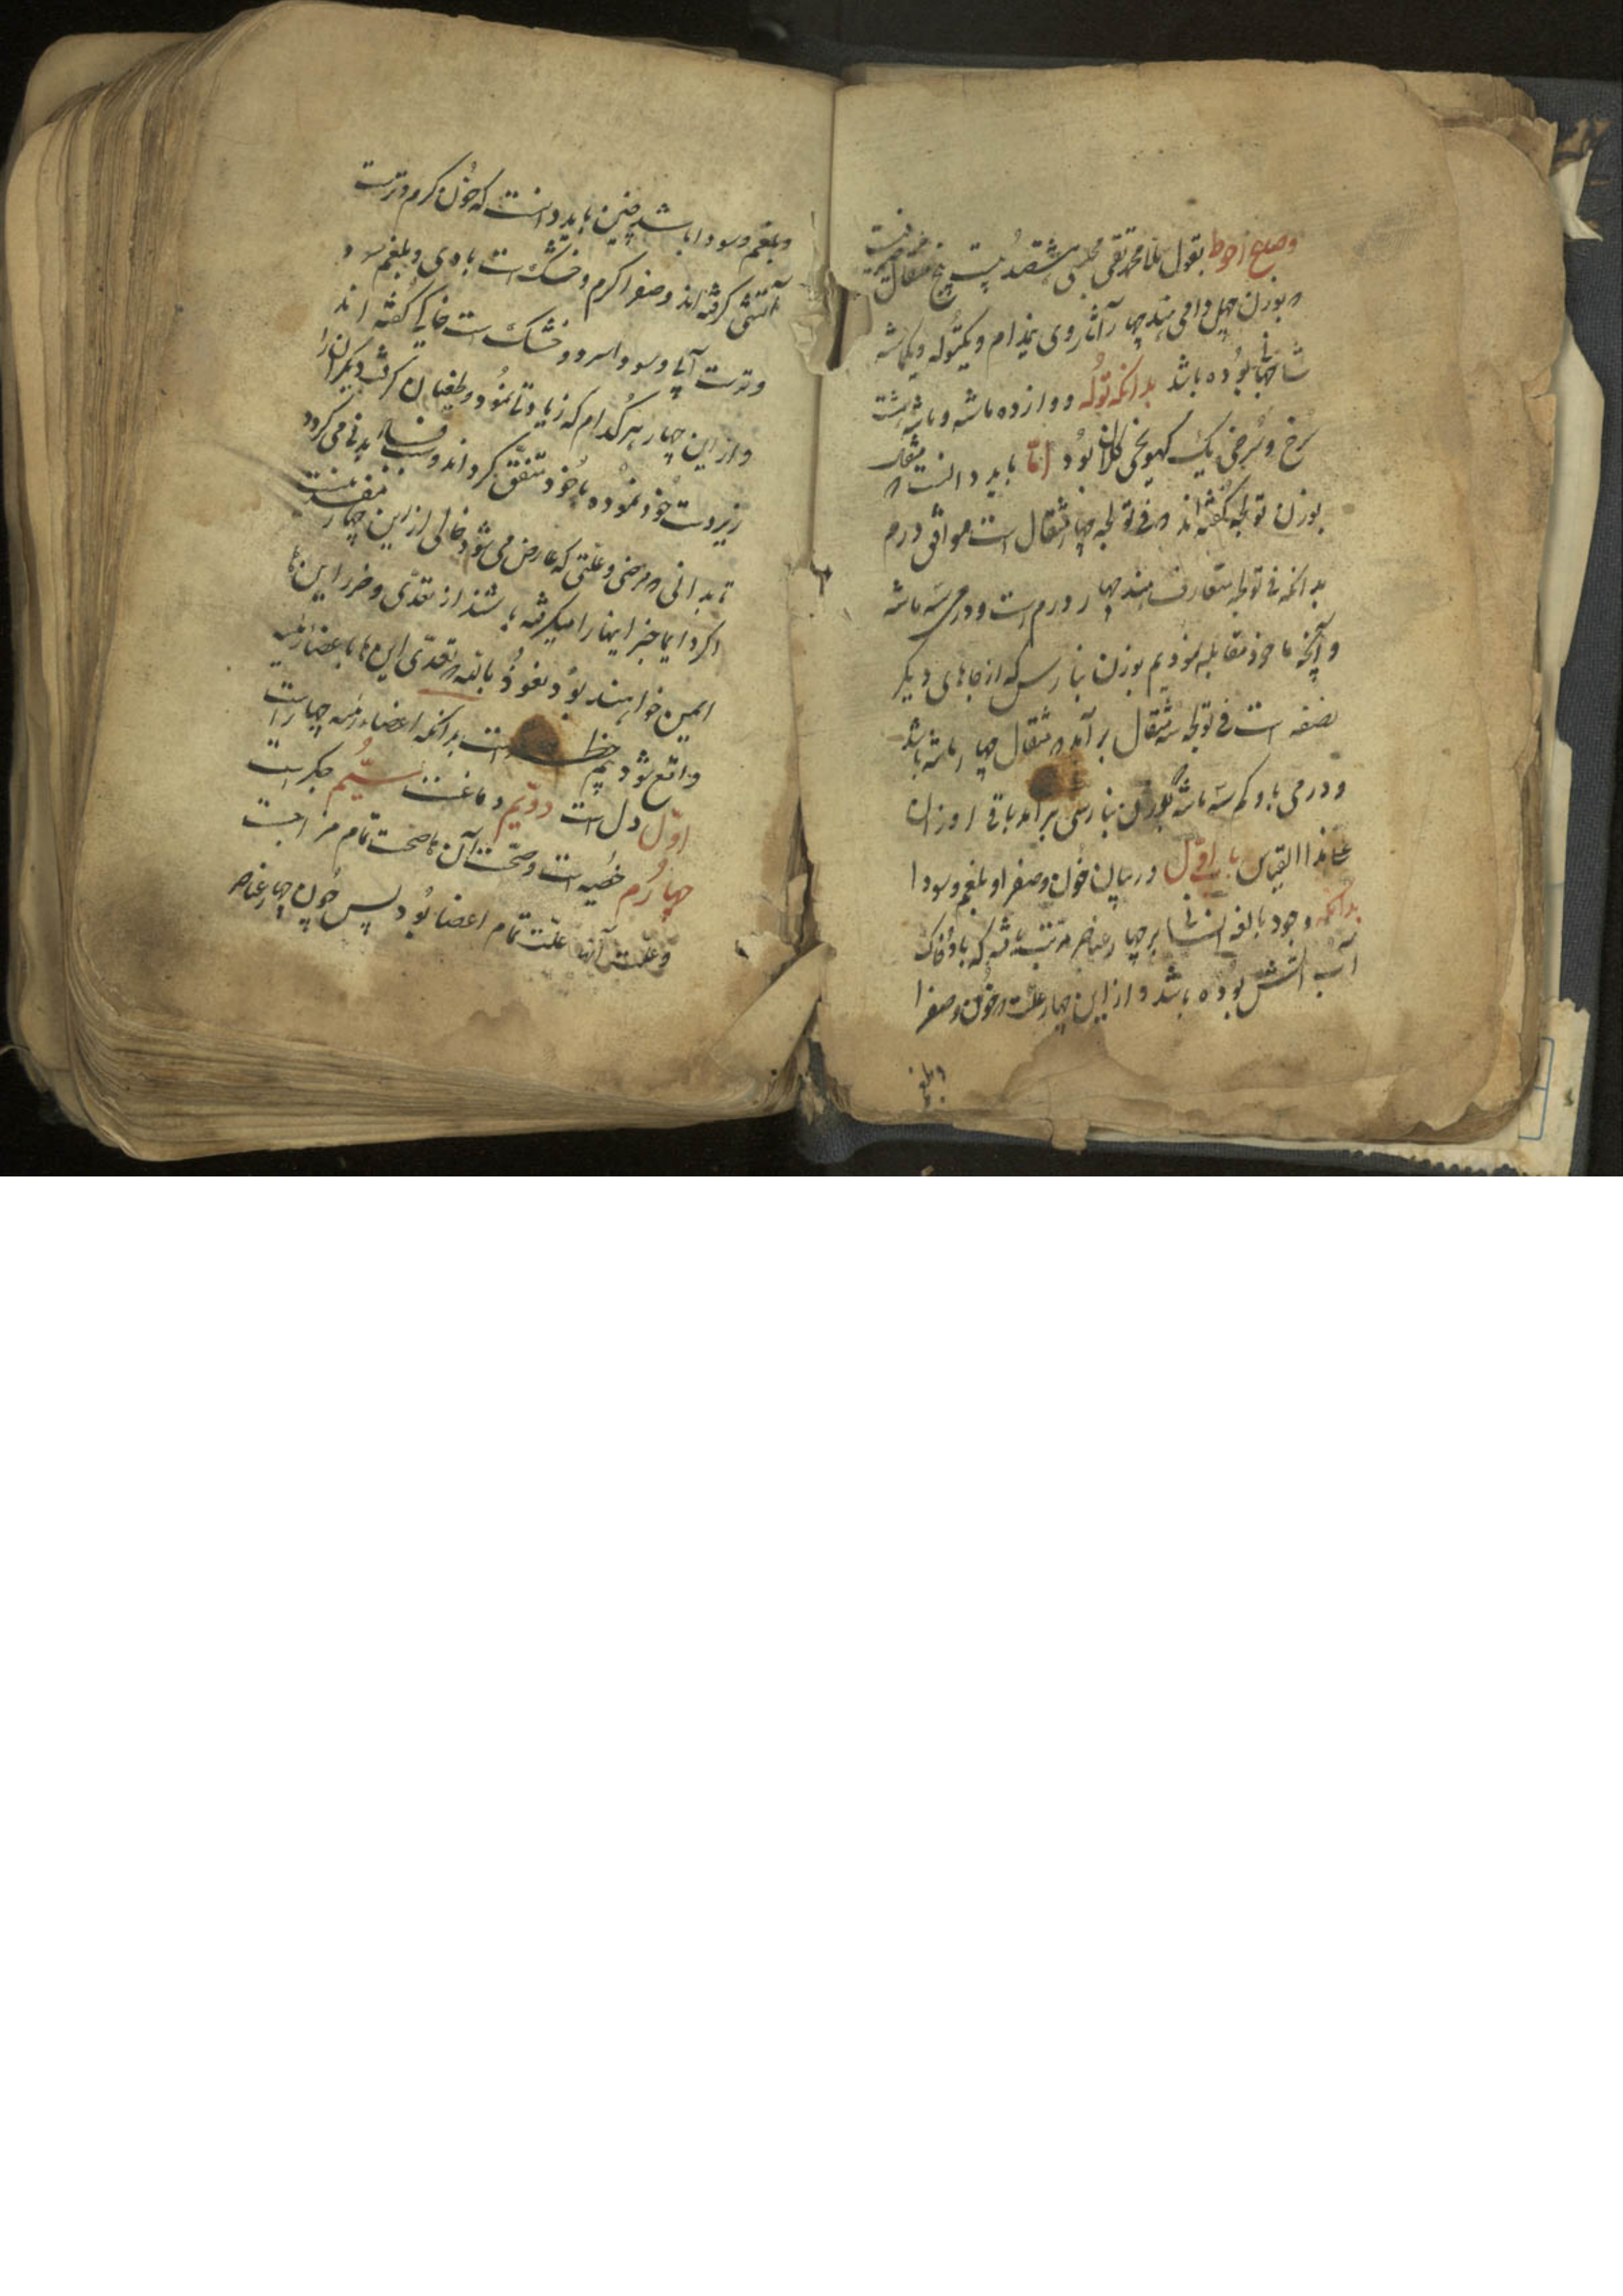 وصاع احوط بقول ملا محمد تقی مجلسی ششصد بیست پنج مثقال
بوزن چهل دامی هند چهار آثار وی نیم دام و یکتوله و یکماشه
شاهجهانی بوده باشد بدانکه توله دوازده ماشه و ماشه هشت
سرخ و سرخی یک گهونچی کلان بود امّا باید دانست مثقال
بوزن تولچه گفته‌اند فی تولچه چهار مثقال است موافق درم
بدانکه فی تولچه متعارف هند چهار درم است و درمی سه ماشه
و آنچه ما خود مقابله نمودیم بوزن بنارس که از جاهای دیگر
است فی تولچه سه مثقال برآمد مثقال چهار ماشه باشد
و درمی با و کم سه ماشه بوزن بنارسی برآمد باقی اوزان
علی هذا القیاس باب اوّل در بیان خون و صفرا و بلغم و سودا
بدانکه وجود انسانی بر چهار عناصر که باد و خاک
آب آتش بوده باشد و از این چهار علت خون و صفرا
و بلغم
و بلغم و سودا باشد چنین باید دانست که خون گرم و تر است
آتشی گرفته‌اند و صفرا گرم و خشک است بادی و بلغم سرد
و تر است آبی و سودا سرد و خشک است خاکی گفته اند
و از این چهار هر کدام که زیادتی نمود و طغیان گرفت دیگران را
زیردست خود نموده با خود متفق گرداند و سبب فساد بدنی می گردد
تا بدانی مرضی و علتی که عارض می شود خالی از این چهار مفسد نیست
اگر دایما خبر اینها را میگرفته باشند از تعدّی و ضرر این ها
ایمن خواهند بود نعوذ بالله تعدّی این ها باعضاء رئیسه
واقع شود بیم خطر است بدانکه اعضاء رئیسه چهار است
اوّل دل است دویّم دماغست سیّم جگر است
چهارُم خصیه است و صحّت آن ها صحت تمام مزاجست
و علت آنها علّت تمام اعضا بود پس چون چهار عناصر